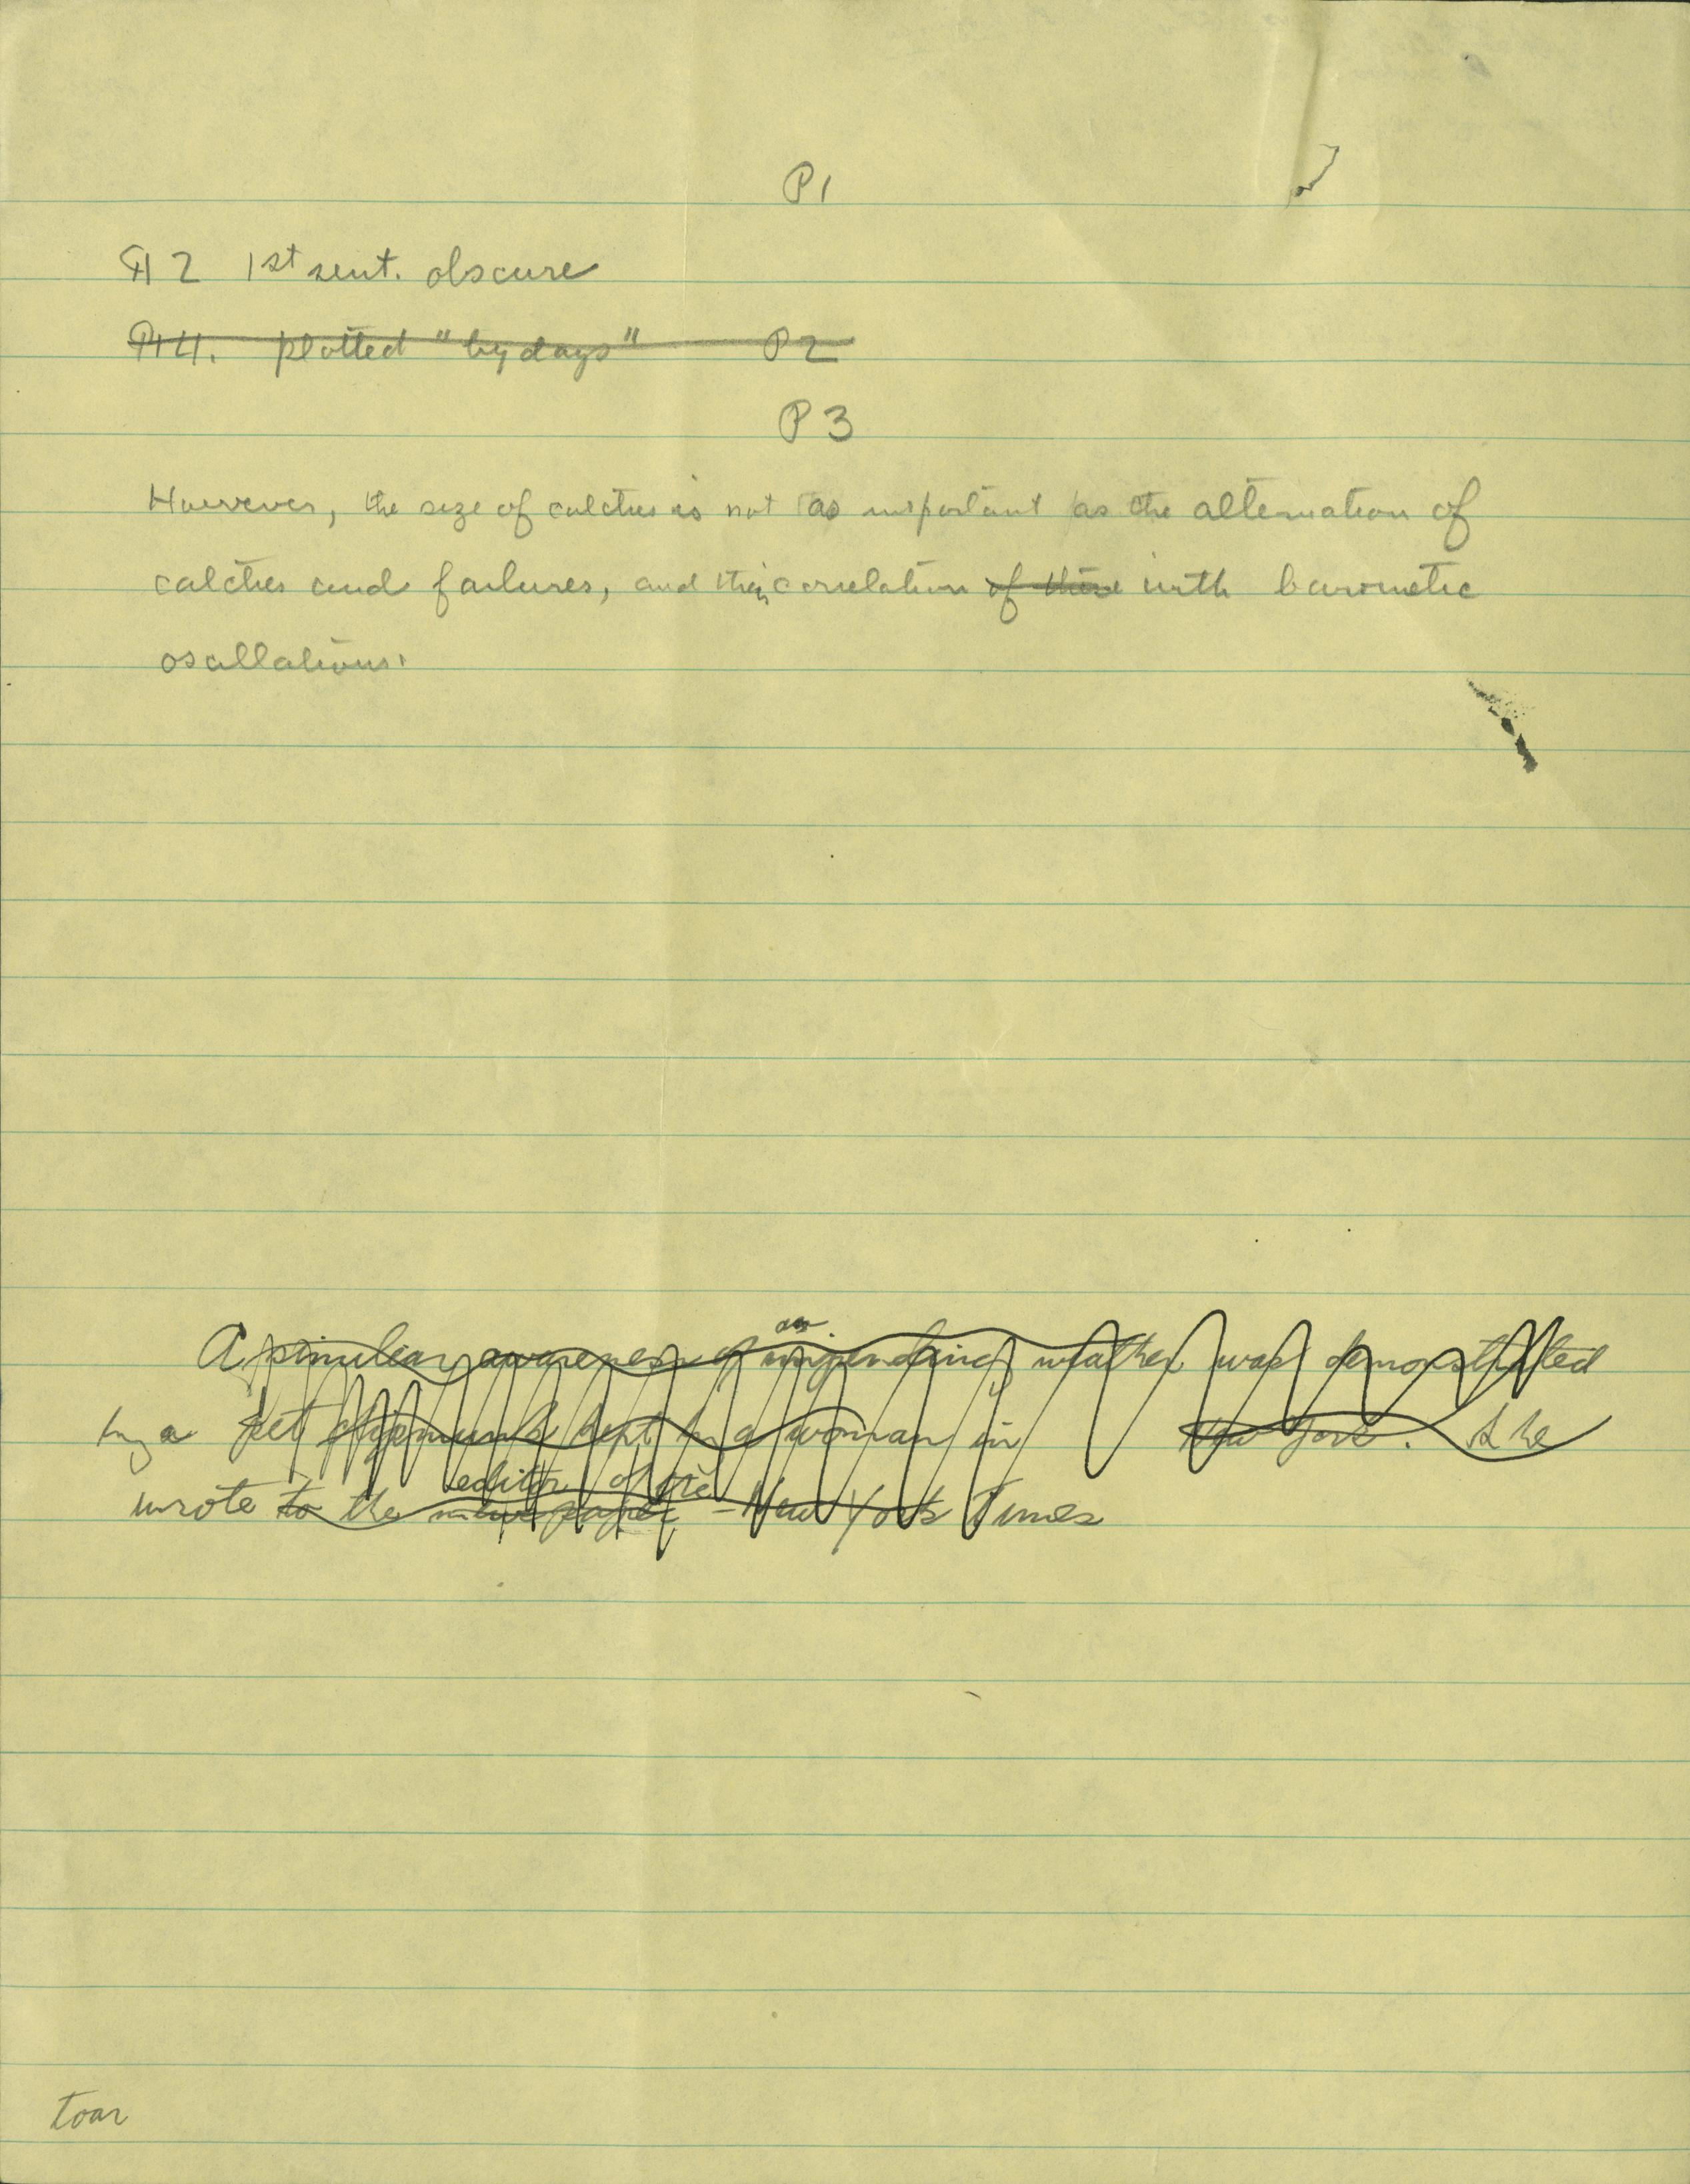 P1
¶ 2 1st sent. obscure
¶ 4. plotted "by days" P2
P 3
However, the size of catches is not as important as the alternation of
catches and failures, and their correlation of these with barometic
oscillations.
A similar awareness of an impending weather was demonstrated
by a pet chipmunk kept by a woman in New York. She
editor of the
wrote to the newspaper - New York Times